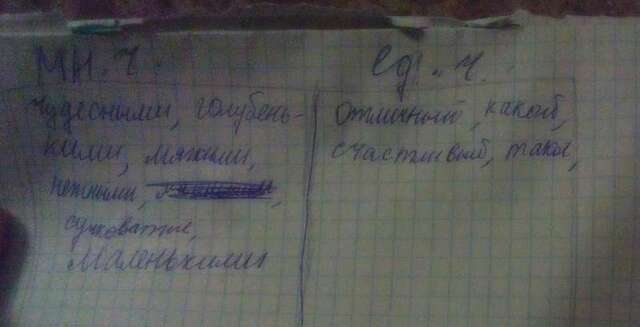 мн. ч.
чудесными, голубень-
кими, мягкими,
нежными,
сучковатые,
маленькими
ед. ч.
отличный, какой,
счастливый, такое,